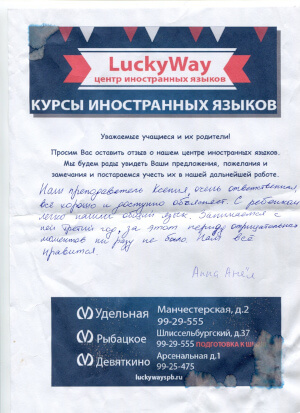 LuckyWay
центр иностранных языков
КУРСЫ ИНОСТРАННЫХ ЯЗЫКОВ
Уважаемые учащиеся и их родители!
Просим Вас оставить отзыв о нашем центре иностранных языков.
Мы будем рады увидеть Ваши предложения, пожелания и
замечания и постараемся учесть их в нашей дальнейшей работе.
Наш преподаватель Ксения, очень ответственная,
всё хорошо и доступно объясняет. С ребёнком
легко нашли общий язык. Занимаемся с
ней третий год, за этот период отрицательных
моментов ни разу не было. Нам всё
нравится.
Анна
Удельная
Манчестерская, д.2
99-29-555
Рыбацкое
Шлиссельбургский, д.37
99-29-555 ПОДГОТОВКА К
Девяткино
Арсенальная д.1
99-25-475
luckywayspb.ru